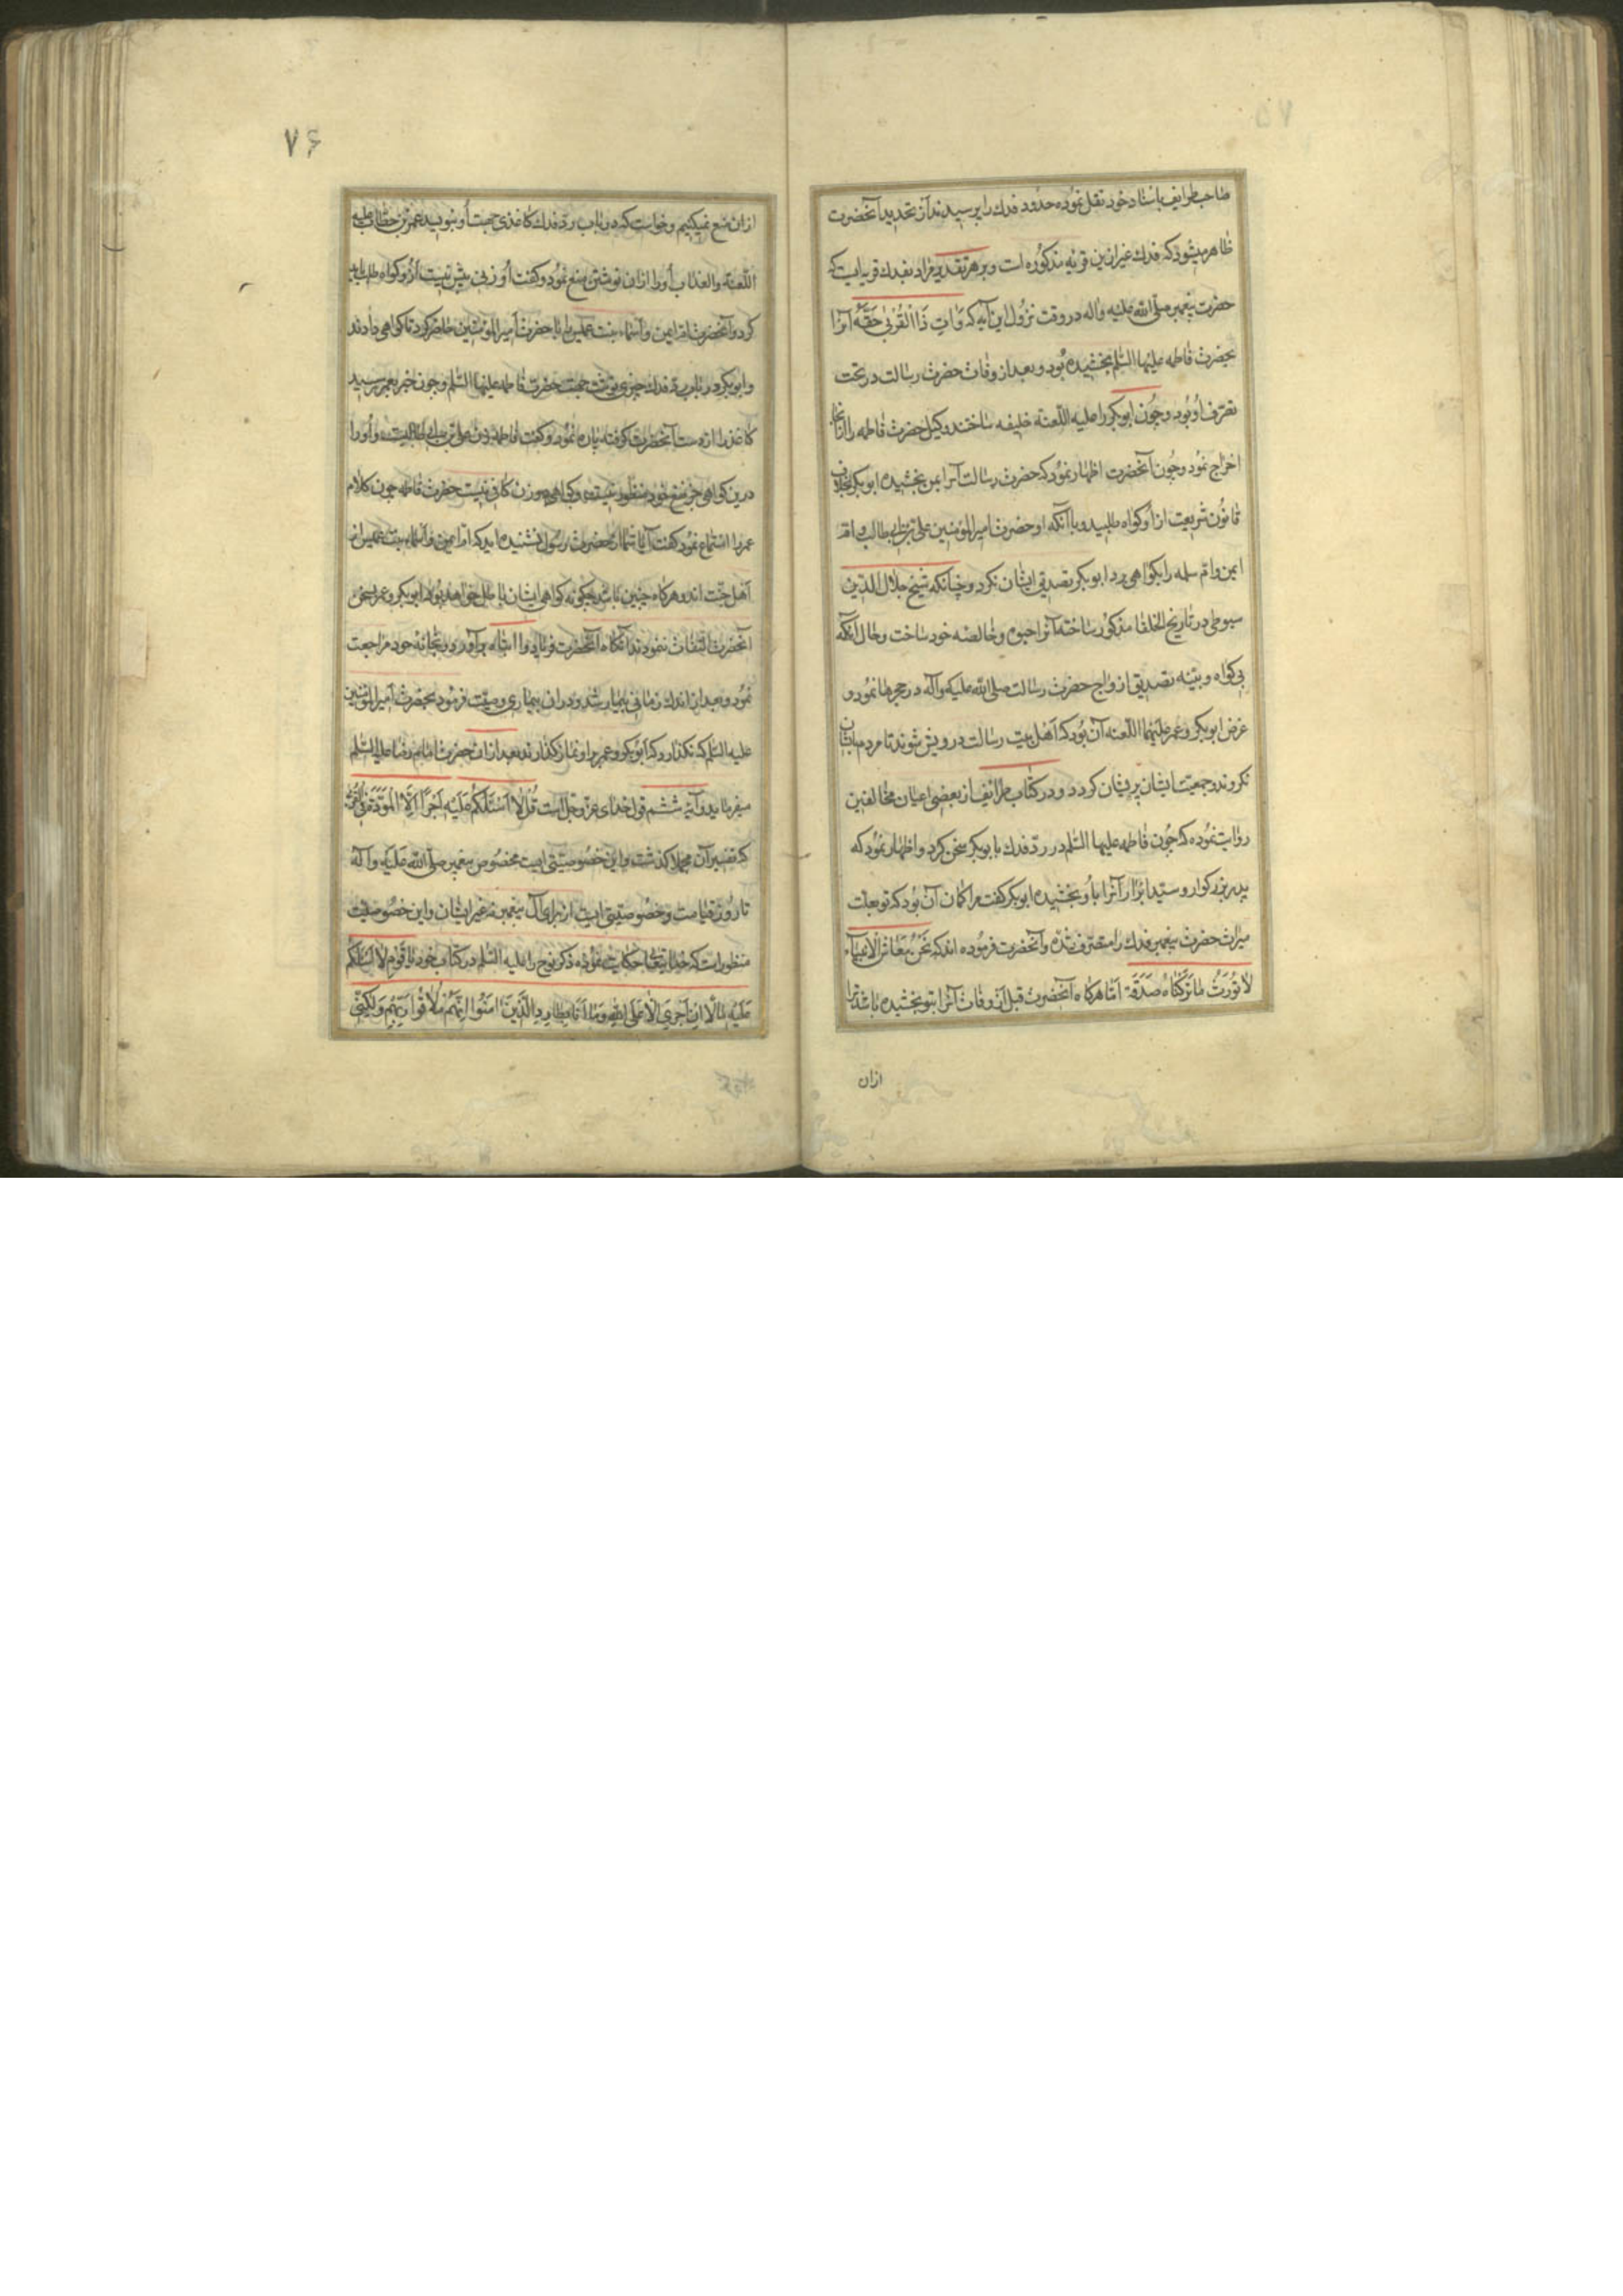 ۷۵
صاحب طرایف باسناد خود نقل نموده حدود فدك را پرسیدند از تحدید آنحضرت
ظاهر میشود که فدك غیر از این قریه مذکوره است و بر هر تقدیر مراد بفدك قریه ایست که
حضرت پیغمبر صلی الله علیه واله در وقت نزول این آیه که وَاٰتِ ذَا الْقُرْبیٰ حَقَّهُ آنرا
بحضرت فاطمه علیها السّلم بخشیده بود و بعد از وفات حضرت رسالت در تحت
تصرّف او بود و چون ابوبکر را علیه اللّعنة خلیفه ساختند وکیل حضرت فاطمه را از آنجا
اخراج نمود و چون آنحضرت اظهار نمود که حضرت رسالت آنرا بمن بخشیده ابوبکر بخلاف
قانون شریعت از او کواه طلبید و با آنکه او حضرت امیر المؤمنین علی بن ابی طالب و امّ
ایمن و امّ سلمه را بکواهی برد ابوبکر تصدیق ایشان نکرد و چنانکه شیخ جلال الدّین
سیوطی در تاریخ الخلفا مذکور ساخته آنرا حبوه و خالصه خود ساخت و حال آنکه
بی کواه و بیّنه تصدیق ازواج حضرت رسالت صلی الله علیه وآله در حجرها نمود و
غرض ابوبکر و عمر علیهما اللّعنه آن بود که اهل بیت رسالت درویش شوند تا مردم بایشان
نکروند و جمعیت ایشان پریشان کردد و در کتاب طرائف از بعضی اعیان مخالفین
روایت نموده که چون فاطمه علیها السّلم در ردّ فدك با ابوبکر سخن کرد و اظهار نمود که
پدر بزرکوار و سیّد ابرار آنرا باو بخشیده ابوبکر کفت مرا کمان آن بود که تو بعلت
میراث حضرت پیغمبر فدك را متصرّف شدهٔ و آنحضرت فرموده اند که نَحْنُ مَعَاشِرَ الْاَنْبِیَآءِ
لَا نُوَرِّثُ مَا تَرَكْنَاهُ صَدَقَة امّا هرکاه آنحضرت قبل از وفات آنرا بتو بخشیده باشد ترا
ازان
۷۶
ازان منع نمیکنیم و خواست که در باب ردّ فدك کاغذی جهت او بنویسد عمر بن خطّاب علیه
اللّعنة والعذاب او را ازان نوشتن منع نمود و کفت او زنی بیش نیست ازو کواه طلب باید
کرد و آنحضرت امّ ایمن و اسماء بنت عمیس را با حضرت امیر المؤمنین حاضر کرد تا کواهی دادند
و ابوبکر در باب ردّ فدك چیزی نوشت جهت حضرت فاطمه علیها السّلم و چون خبر بعمر رسید
کاغذ را از دست آنحضرت کرفته پاره نمود و کفت فاطمه زن علی بن ابی طالبست و او را
درین کواهی جز نفع خود منظور نیست و کواهی دو زن کافی نیست حضرت فاطمه چون کلام
عمر را استماع نمود کفت آیا شما از حضرت رسول نشنیده اید که امّ ایمن و اسماء بنت عمیس از
اهل جنّت اند و هرکاه چنین باشد چکونه کواهی ایشان باطل خواهد بود ابوبکر و عمر بسخن
آنحضرت التفات ننمودند آنکاه آنحضرت فریاد وا ابتاه برآورد و بخانهٔ خود مراجعت
نمود و بعد از اندك زمانی بیمار شد و دران بیماری وصیّت فرمود بحضرت امیر المؤمنین
علیه السّلم که نکذارد که ابوبکر و عمر برو نماز کذارند بعد ازان حضرت امام رضا علیه السّلم
میفرماید و آیهٔ ششم قول خدای عزّ وجلّ است قُلْ لَا اَسْئَلُكُمْ عَلَيْهِ اَجْرًا اِلَّا الْمَوَدَّةَ فِی الْقُرْبیٰ
که تفسیر آن مجملا کذشت و این خصوصیّتی است مخصوص پیغمبر صلّی الله علیه و آله
تا روز قیامت و خصوصیّتی است از برای آل پیغمبر نه غیر ایشان و این خصوصیّت
منظور است که خدایتعالی حکایت نموده ذکر نوح را علیه السّلم در کتاب خود یَا قَوْمِ لَا اَسْئَلُكُمْ
عَلَيْهِ مَالًا اِنْ اَجْرِيَ اِلَّا عَلَی اللهِ وَمَا اَنَا بِطَارِدِ الَّذِينَ اٰمَنُوا اِنَّهُمْ مُلَاقُوا رَبِّهِمْ وَلٰكِنِّی